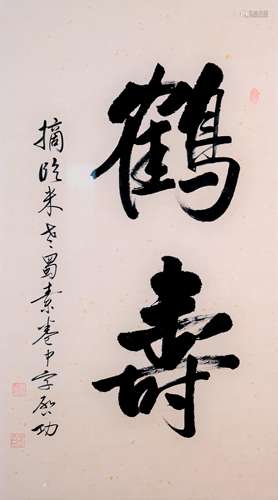 鶴壽
摘臨米老蜀素卷中字啟功